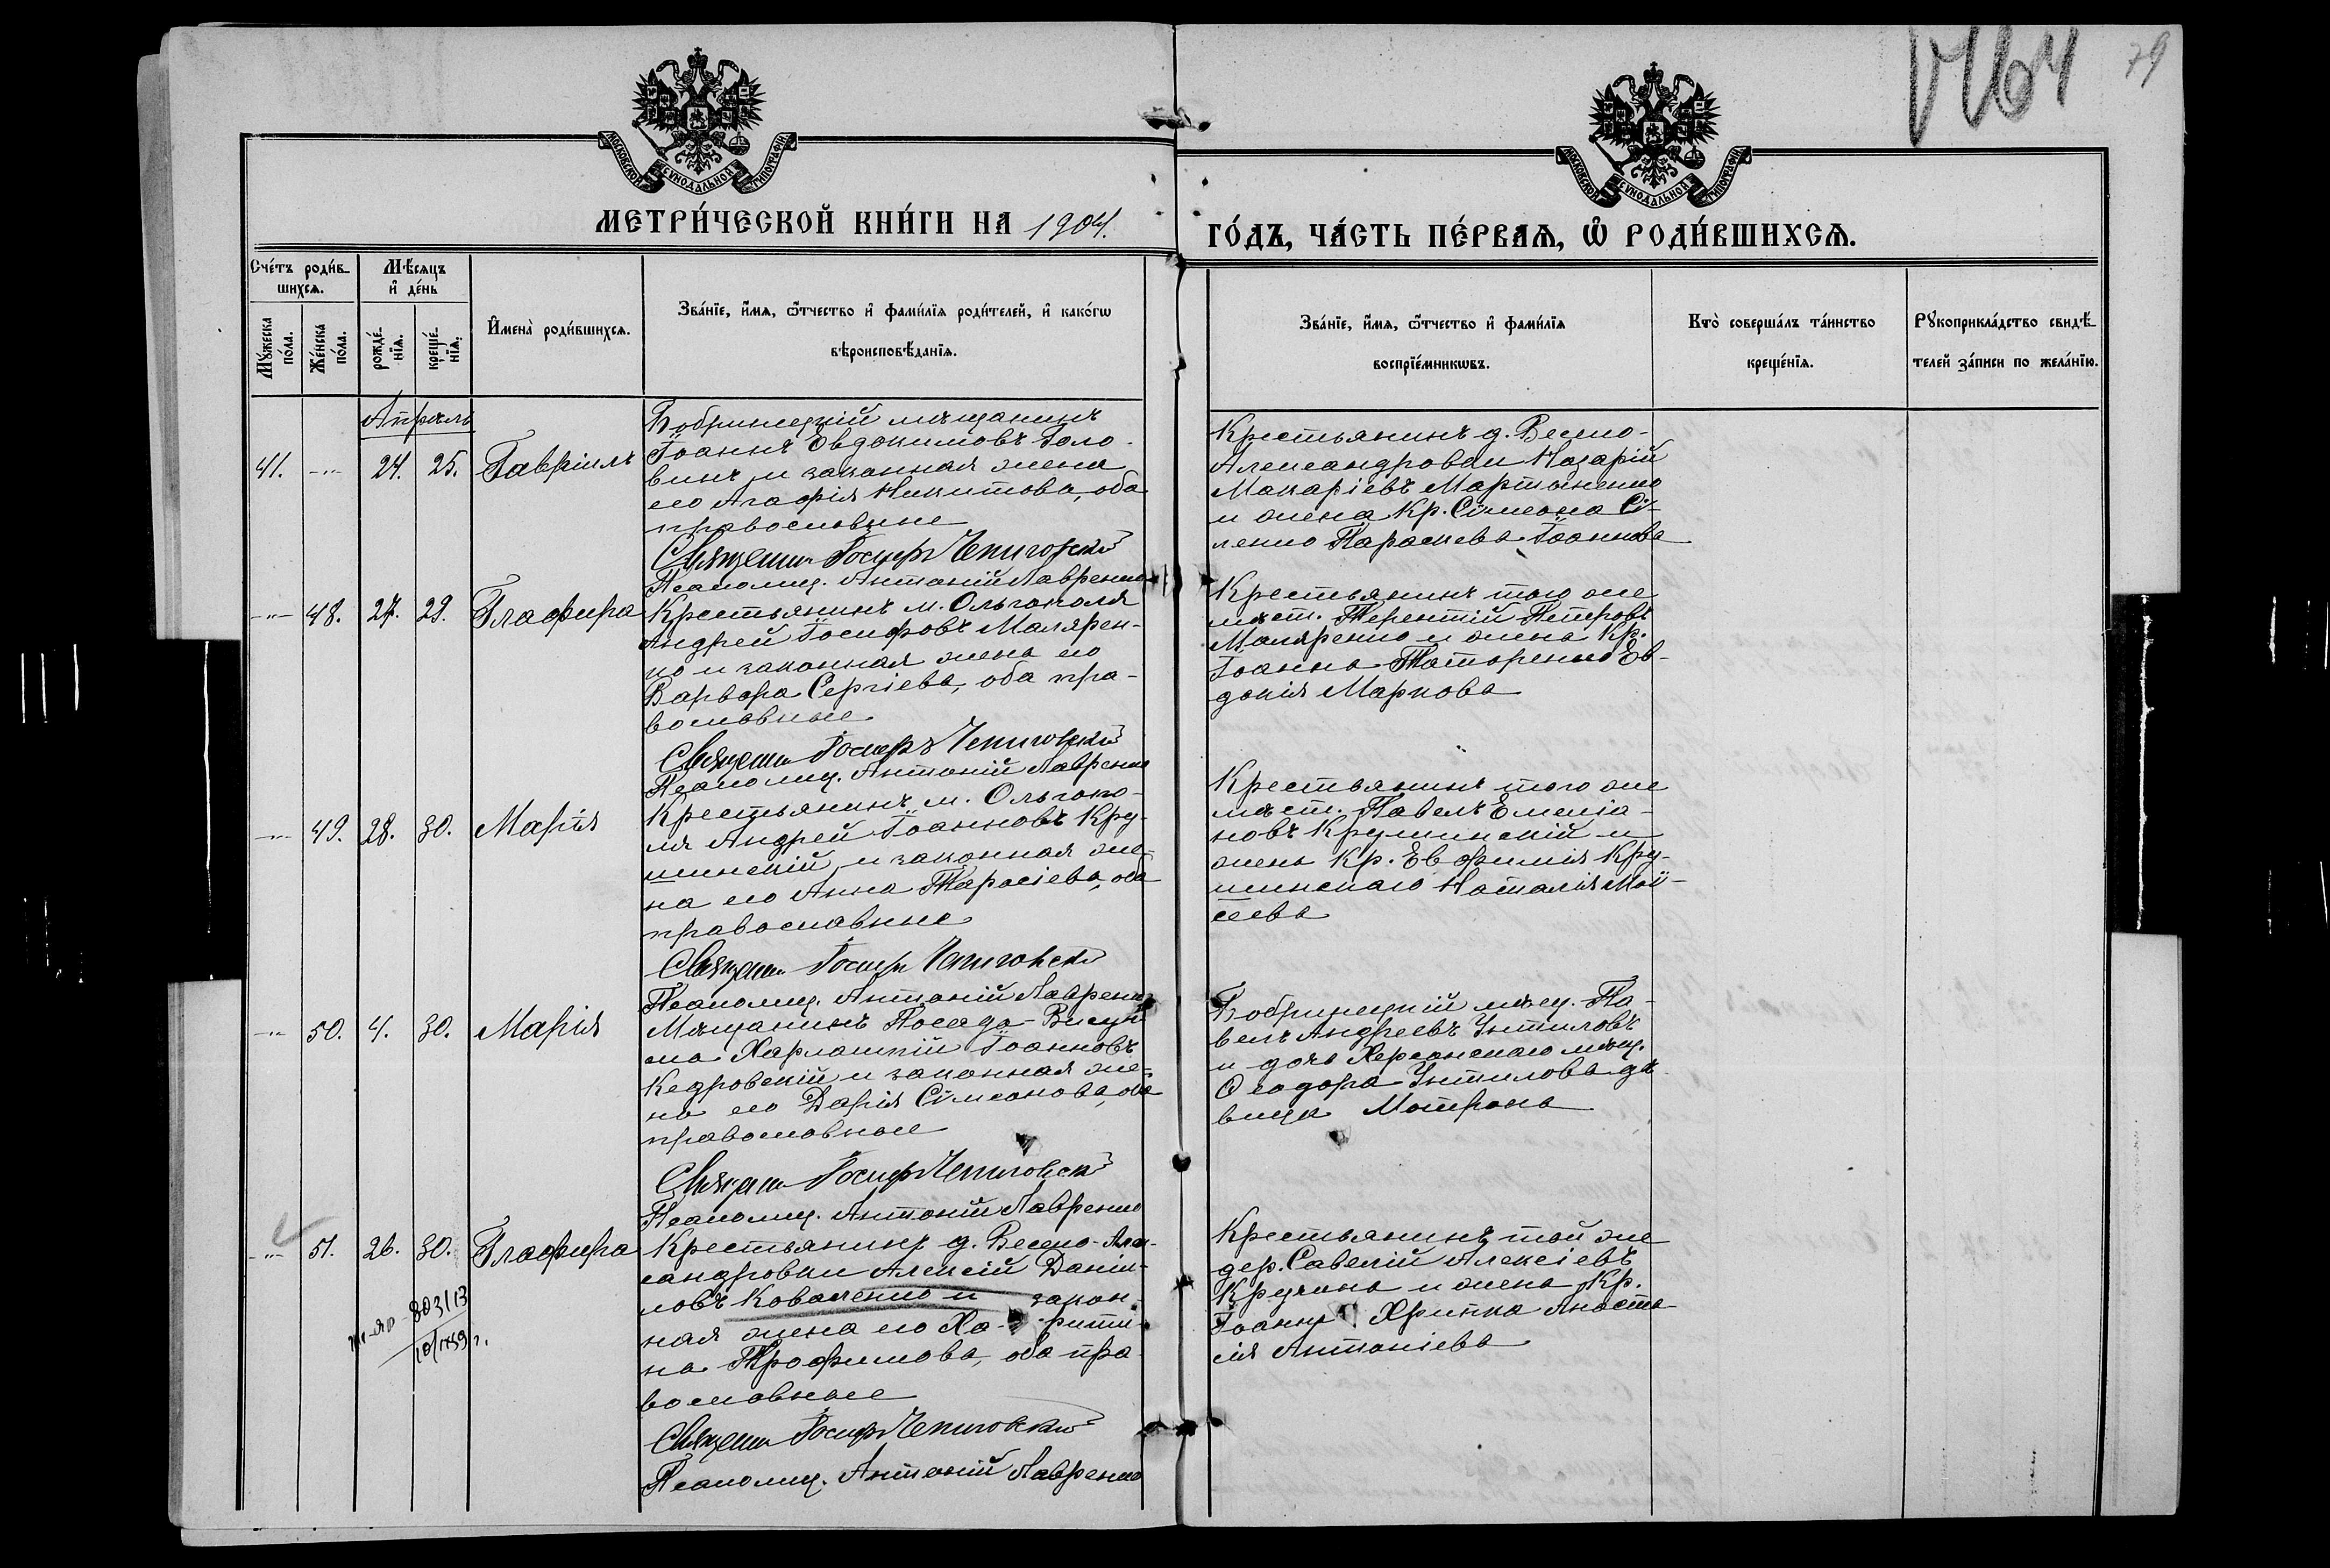 1764
79
МОСКОВСКОЙ СѴНОДАЛЬНОЙ ТИПОГРАФІИ
МОСКОВСКОЙ СѴНОДАЛЬНОЙ ТИПОГРАФІИ
МЕТРИ́ЧЕСКОЙ КНИ́ГИ НА 1904.
ГО́ДЪ, ЧА́СТЬ ПЕ́РВАѦ, Ѡ҆ РОДИ́ВШИХСѦ.
Сче́тъ роди́в-
шихсѧ.
Мѣ́сѧцъ
и҆ де́нь
Мꙋ́жеска
по́ла.
Же́нска
по́ла.
рожде́-
нїѧ.
креще́-
нїѧ.
И҆мена̀ роди́вшихсѧ.
Зва́нїе, и҆́мѧ, ѻ҆́тчество и҆ фами́лїѧ роди́телей, и҆ како́гѡ
вѣроисповѣ́данїѧ.
Зва́нїе, и҆́мѧ, ѻ҆́тчество и҆ фами́лїѧ
воспрїе́мникѡвъ.
Кто̀ соверша́лъ та́инство
креще́нїѧ.
Рꙋкоприкла́дство свидѣ́-
телей за́писи по жела́нїю.
Апрѣль
41. -"- 24. 25. Гавріилъ
Бобринецкій мѣщанинъ
Іоаннъ Евдокимовъ Голо-
винъ и законная жена
его Агафія Никитова, оба
православные
Священ. Іосифъ Чепиговскій
Псаломщ. Антоній Лавренко
Крестьянинъ д. Весело-
Александровки Назарій
Макаріевъ Мартыненко
и жена кр. Сѵмеона Сі-
ленко Параскева Іоаннова
-"- 48. 27. 29. Глафира
Крестьянинъ м. Ольгополя
Андрей Іосифовъ Малярен-
ко и законная жена его
Варвара Сергіева, оба пра-
вославные
Священ. Іосифъ Чепиговскій
Псаломщ. Антоній Лавренко
Крестьянинъ того же
мѣст. Терентій Петровъ
Маляренко и жена кр.
Іоанна Татаренко Ев-
докія Маркова
-"- 49. 28. 30. Марія
Крестьянинъ м. Ольгопо-
ля Андрей Іоанновъ Кру-
шинскій и законная же-
на его Анна Тарасіева, оба
православные
Священ. Іосифъ Чепиговскій
Псаломщ. Антоній Лавренко
Крестьянинъ того же
мѣст. Павелъ Емелія-
новъ Крушинскій и
жена кр. Евфимія Кру-
шинскаго Наталія Мои-
сеева
-"- 50. 4. 30. Марія
Мѣщанинъ Посада Висун-
ска Харлампій Іоанновъ
Кедровскій и законная же-
на его Дарія Сѵмеонова, оба
православные
Священ. Іосифъ Чепиговскій
Псаломщ. Антоній Лавренко
Бобринецкій мѣщ. Па-
велъ Андреевъ Унтиловъ
и дочь Херсонскаго мѣщ.
Ѳеодора Унтилова дѣ-
вица Матрона
-"- 51. 26. 30. Глафира
803/13
10/VII 59 г.
Крестьянинъ д. Весело-Алек-
сандровки Алексій Даніи-
ловъ Коваленко и закон-
ная жена его Ха- рити-
на Трофимова, оба пра-
вославные
Священ. Іосифъ Чепиговскій
Псаломщ. Антоній Лавренко
Крестьянинъ той же
дер. Савелій Алексіевъ
Кручина и жена кр.
Іоанна Хрипка Анаста-
сія Антоніева